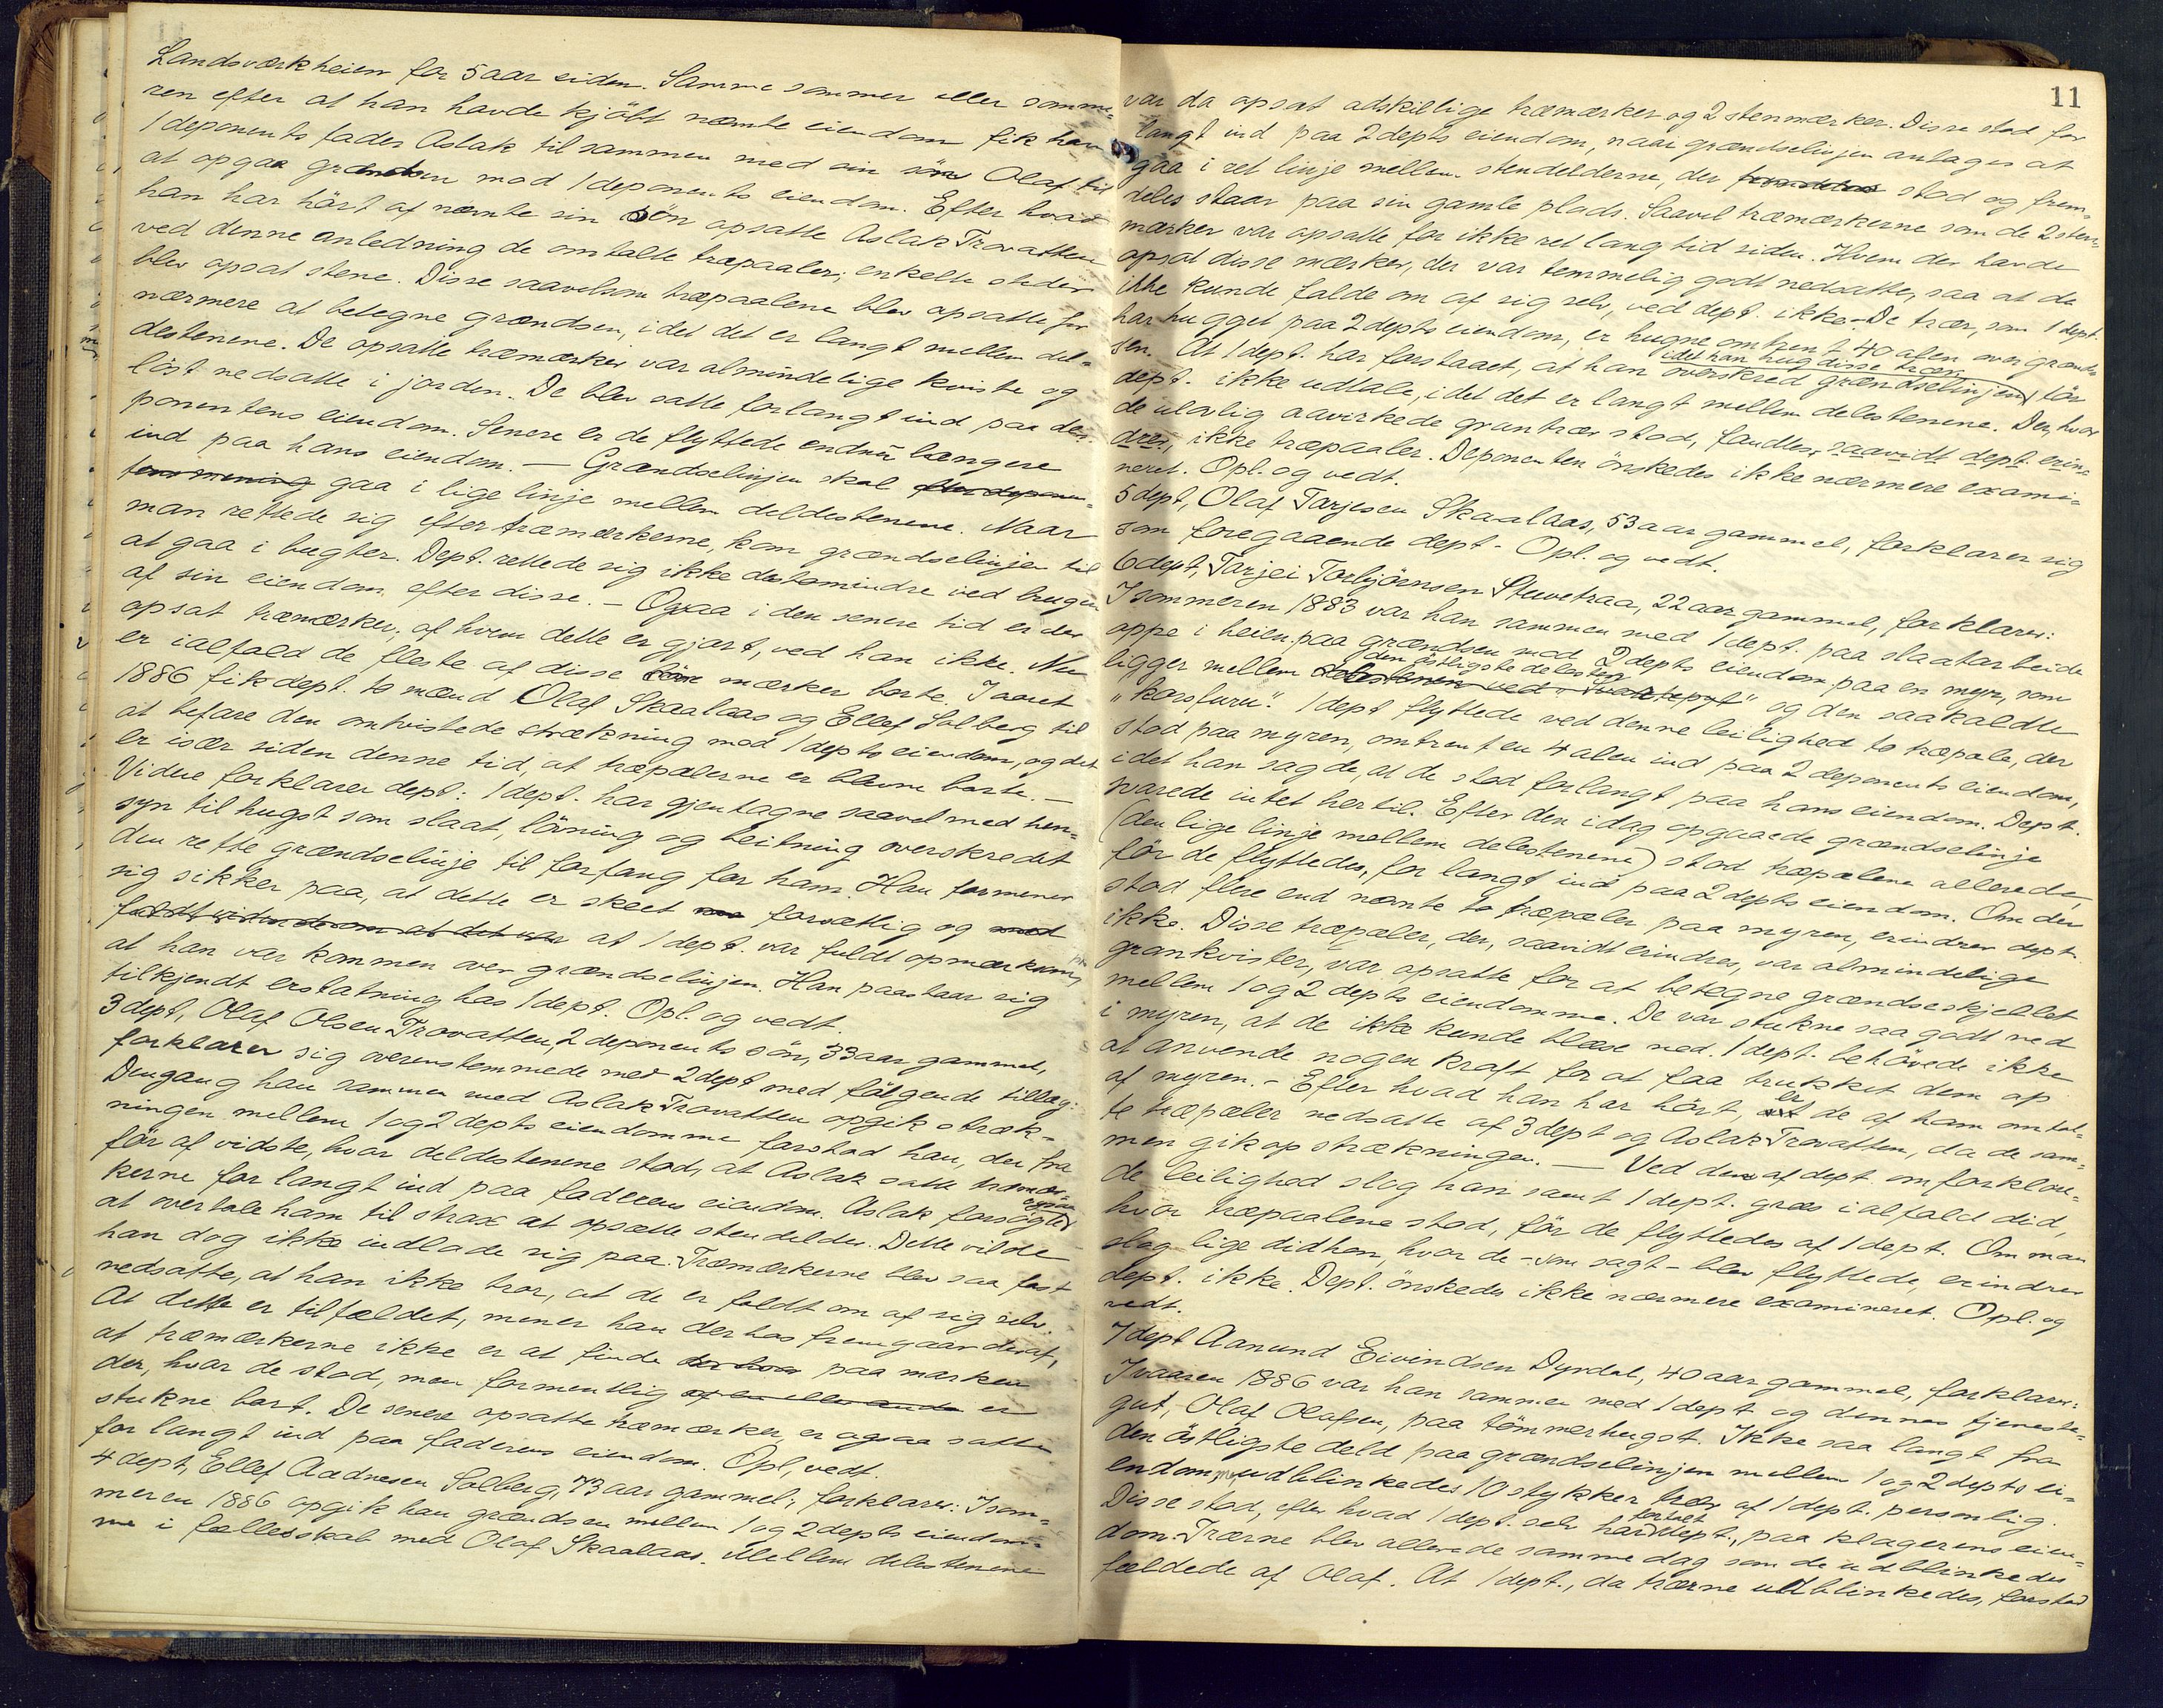 Landsværkheien for 5 aar siden. Samme sommer eller somme-
ren efter at han havde kjöbt nævnte eiendom fik han
1 deponents fader Aslak tilsammen med sin sön Olaf til
at opgaa grændsen mod 1 deponents eiendom. Efter hvad
han har hört af nævnte sin Sön opsatte Aslak Trovatten
ved denne anledning de omtalte træpaaler; enkelte steder
blev opsat stene. Disse saavelsom træpaalene blev opsatte for
nærmere at betegne grændsen, idet det er langt mellem del-
destenene. De opsatte træmærker var almindelige kviste og
löst nedsatte i jorden. De blev satte forlangt ind paa de-
ponentens eiendom. Senere er de flyttede endnu længere
ind paa hans eiendom. — Grændselinjen skal efter deponen-
tens mening gaa i lige linje mellem deldestenene. Naar
man rettede sig efter træmærkerne, kom grændselinjen til
at gaa i bugter. Dept. rettede sig ikke destomindre ved brugen
af sin eiendom efter disse. — Ogsaa i den senere tid er der
opsat træmærker; af hvem dette er gjort, ved han ikke. Nu
er ialfald de fleste af disse mærker borte. I aaret
1886 fik dept. to mænd Olaf Skaalaas og Ellef Solberg til
at befare den omtvistede strækning mod 1 depts eiendom, og det
er især siden denne tid, at træpælerne er blevne borte. —
Videre forklarer dept: 1 dept. har gjentagne saavel med hen-
syn til hugst som slaat, lövning og beitning overskredet
den rette grændselinje til forfang for ham. Han formener
sig sikker paa, at dette er skeet forsætlig og med
fuldt vidende om at det var at 1 dept var fuldt opmærksom paa,
at han var kommen over grændselinjen. Han paastaar sig
tilkjendt erstatning hos 1 dept. Opl. og vedt.
3 dept, Olaf Olsen Trovatten, 2 deponents sön, 33 aar gammel,
forklarer sig overenstemmede med 2 dept med fölgende tillæg:
Dengang han sammen med Aslak Trovatten opgik stræk-
ningen mellem 1 og 2 depts eiendomme forstod han, der fra
för af vidste, hvor deldestenene stod, at Aslak satte træmær-
kerne for langt ind paa faderens eiendom. Aslak forsögte ogsaa
at overtale ham til strax at opsætte stendelder. Dette vilde
han dog ikke indlade sig paa. Træmærkerne blev saa fast
nedsatte, at han ikke tror, at de er faldt om af sig selv.
At dette er tilfældet, mener han derhos fremgaar deraf,
at træmærkerne ikke er at finde der hvor paa marken
der, hvor de stod, men formentlig af en eller anden er
stukne bort. De senere opsatte træmærker, er ogsaa satte
for langt ind paa faderens eiendom. Opl, vedt.
4 dept, Ellef Aadnesen Solberg, 73 aar gammel, forklarer: I som-
meren 1886 opgik han grændsen mellem 1 og 2 depts eiendom-
me i fællesskab med Olaf Skaalaas. Mellem delestenene
11
var da opsat adskillige træmærker og 2 stenmærker. Disse stod for
langt ind paa 2 depts eiendom, naar grændselinjen antages at
gaa i ret linje mellem stendelderne, der stod og frem-
deles staar paa sin gamle plads. Saavel træmærkerne som de 2 sten-
mærker var opsatte for ikke ret lang tid siden. Hvem der havde
opsat disse mærker, der var temmelig godt nedsatte, saa at de
ikke kunde falde om af sig selv, ved dept. ikke. — De trær, som 1 dept.
har hugget paa 2 depts eiendom, er hugne omtrent 40 alen over grænd-
sen. At 1 dept. har forstaaet, at han idet han hug disse trær overskred grændselinjen, tör
dept. ikke udtale, idet det er langt mellem delestenene. Der, hvor
de ulovlig aavirkede grantrær stod, fandtes, saavidt dept. erin-
drer, ikke træpaaler. Deponenten önskedes ikke nærmere exami-
neret. Opl. og vedt.
5 dept, Olaf Tarjesen Skaalaas, 53 aar gammel, forklarer sig
som foregaaende dept. Opl. og vedt.
6 dept, Tarjei Torbjörnsen Stuvetraa, 22 aar gammel, forklarer:
I sommeren 1883 var han sammen med 1 dept. paa slaatarbeide
oppe i heien paa grændsen mod 2 depts eiendom paa en myr, som
ligger mellem den östligste delesten delestenen ved og den saakaldte
„korsfuru". 1 dept flyttede ved denne leilighed to træpæle, der
stod paa myren, omtrent en 4 alen ind paa 2 deponents eiendom,
idet han sagde, at de stod forlangt paa hans eiendom. Dept.
svarede intet hertil. Efter den idag opgaaede grændselinje
(den lige linje mellem delestenene) stod træpælene allerede,
för de flyttedes, for langt ind paa 2 depts eiendom. Om der
stod flere end nævnte to træpæler paa myren, erindrer dept.
ikke. Disse træpæler, der, saavidt erindres, var almindelige
grankvister, var opsatte for at betegne grændseskjellet
mellem 1 og 2 depts eiendomme. De var stukne saa godt ned
i myren, at de ikke kunde blæse ned. 1 dept. behövede ikke
at anvende nogen kraft for at faa trukket dem op
af myren. – Efter hvad han har hört, er de af ham omtal-
te træpæler nedsatte af 3 dept og Aslak Trovatten, da de sam-
men gik op strækningen. — Ved den af dept. omforklare-
de leilighed slog han samt 1 dept. græs ialfald did,
hvor træpaalene stod, för de flyttedes af 1 dept. Om man
slog lige didhen, hvor de – som sagt – blev flyttede, erindrer
dept. ikke. Dept. önskedes ikke nærmere examineret. Opl. og
vedt.
7 dept Aanund Eivindsen Dyrdal, 40 aar gammel, forklarer:
I vaaren 1886 var han sammen med 1 dept og dennes tjeneste-
gut, Olaf Olafsen, paa tömmerhugst. Ikke saa langt fra
den östligste deld paa grændselinjen mellem 1 og 2 depts ei-
endomme, udblinkedes 10 stykker trær af 1 dept. personlig.
Disse stod, efter hvad 1 dept. selv har fortalt dept., paa klagerens eien-
dom. Trærne blev allerede samme dag som de udblinkedes
fældede af Olaf. At 1 dept., da trærne udblinkedes, forstod